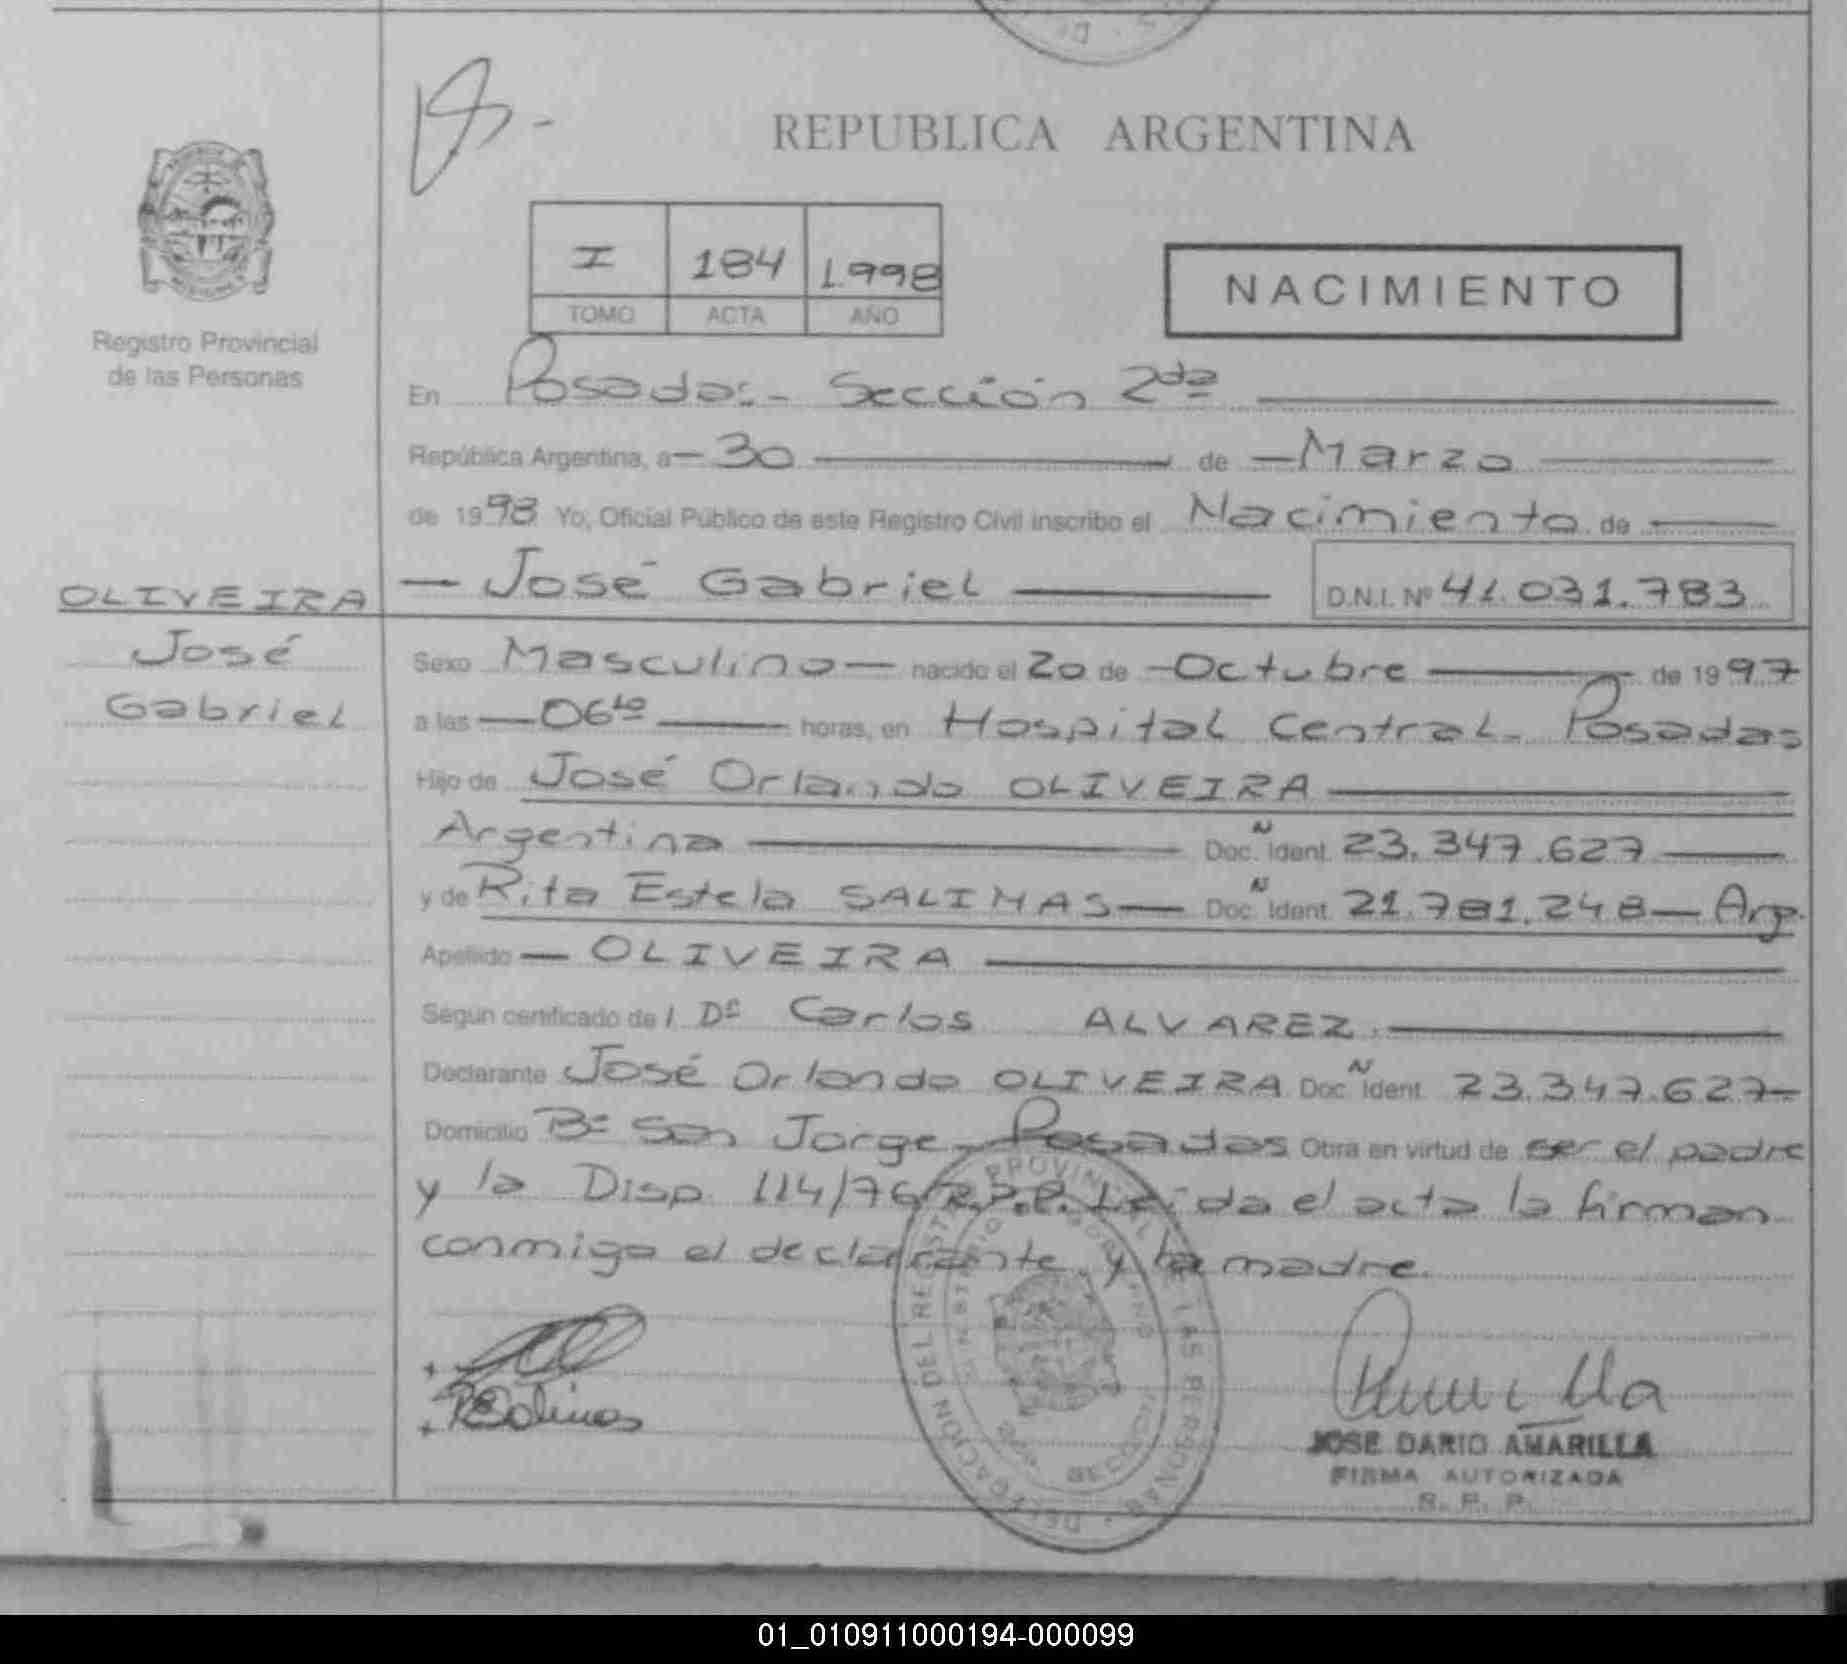 REPUBLICA ARGENTINA
I 184 1.998
TOMO ACTA AÑO
NACIMIENTO
Registro Provincial
de las Personas
En Posadas.- Sección 2da
República Argentina, a - 30 de - Marzo
de 1998 Yo, Oficial Público de este Registro Civil inscribo el Nacimiento de
- José Gabriel D.N.I. Nº 41.031.783
OLIVEIRA
José
Gabriel
Sexo Masculino - nacido el 20 de - Octubre de 1997
a las - 06 horas, en Hospital Central - Posadas
Hijo de José Orlando OLIVEIRA
Argentina Doc. Ident. 23.347.627
y de Rita Estela SALINAS - Doc. Ident. 21.781.248 - Arg.
Apellido - OLIVEIRA
Según certificado de l Dr Carlos ALVAREZ.
Declarante José Orlando OLIVEIRA Doc. Ident. 23.347.627-
Domicilio Bº San Jorge - Posadas Obra en virtud de ser el padre
y la Disp. 114/76 R.P.P. Leída el acta la firman
conmigo el declarante y la madre.
DELEGACION DEL REGISTRO PROVINCIAL DE LAS PERSONAS
SECCION
RESalinas
JOSE DARIO AMARILLA
FIRMA AUTORIZADA
R. P. P.
01_010911000194-000099